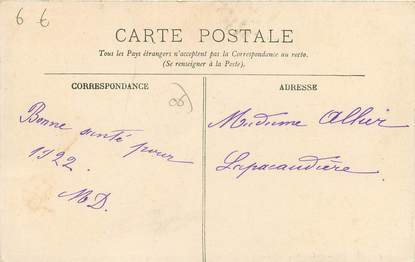 6 €
CARTE POSTALE
Tous les Pays étrangers n'acceptent pas la Correspondance au recto.
(Se renseigner à la Poste).
CORRESPONDANCE
ADRESSE
06
Bonne santé pour
1922
MD.
Madame Allier
Lapacaudière